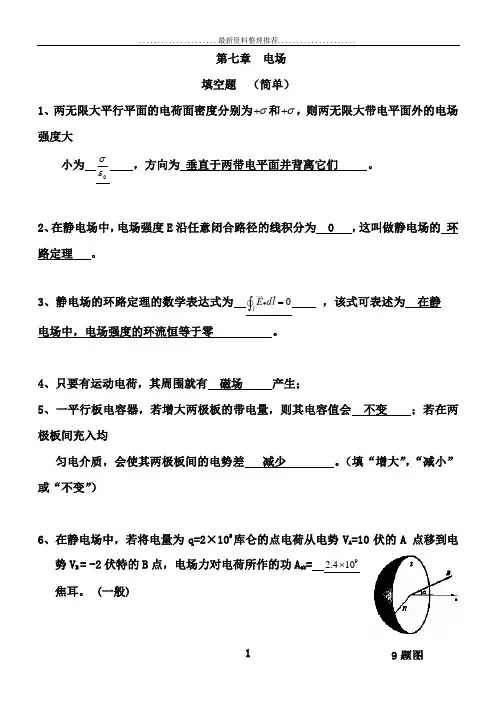 .....................最新资料整理推荐.....................
第七章 电场
填空题 （简单）
1、两无限大平行平面的电荷面密度分别为+σ和+σ，则两无限大带电平面外的电场
强度大
小为 σ/ε₀ ，方向为 垂直于两带电平面并背离它们 。
2、在静电场中，电场强度E沿任意闭合路径的线积分为 0 ，这叫做静电场的 环
路定理 。
3、静电场的环路定理的数学表达式为 ∮ₗE•dl=0 ，该式可表述为 在静
电场中，电场强度的环流恒等于零 。
4、只要有运动电荷，其周围就有 磁场 产生；
5、一平行板电容器，若增大两极板的带电量，则其电容值会 不变 ；若在两
极板间充入均
匀电介质，会使其两极板间的电势差 减少 。（填“增大”，“减小”
或“不变”）
6、在静电场中，若将电量为q=2×10⁸库仑的点电荷从电势V_A=10伏的A点移到电
势V_B = -2伏特的B点，电场力对电荷所作的功A_ab= 2.4×10⁹
焦耳。 (一般)
S
B
R
9题图
1